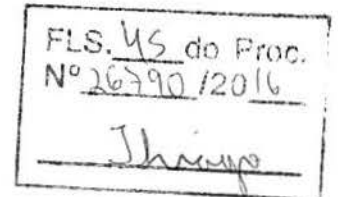 FLS. 45 do Proc.
Nº 26790 /2016
Thiago